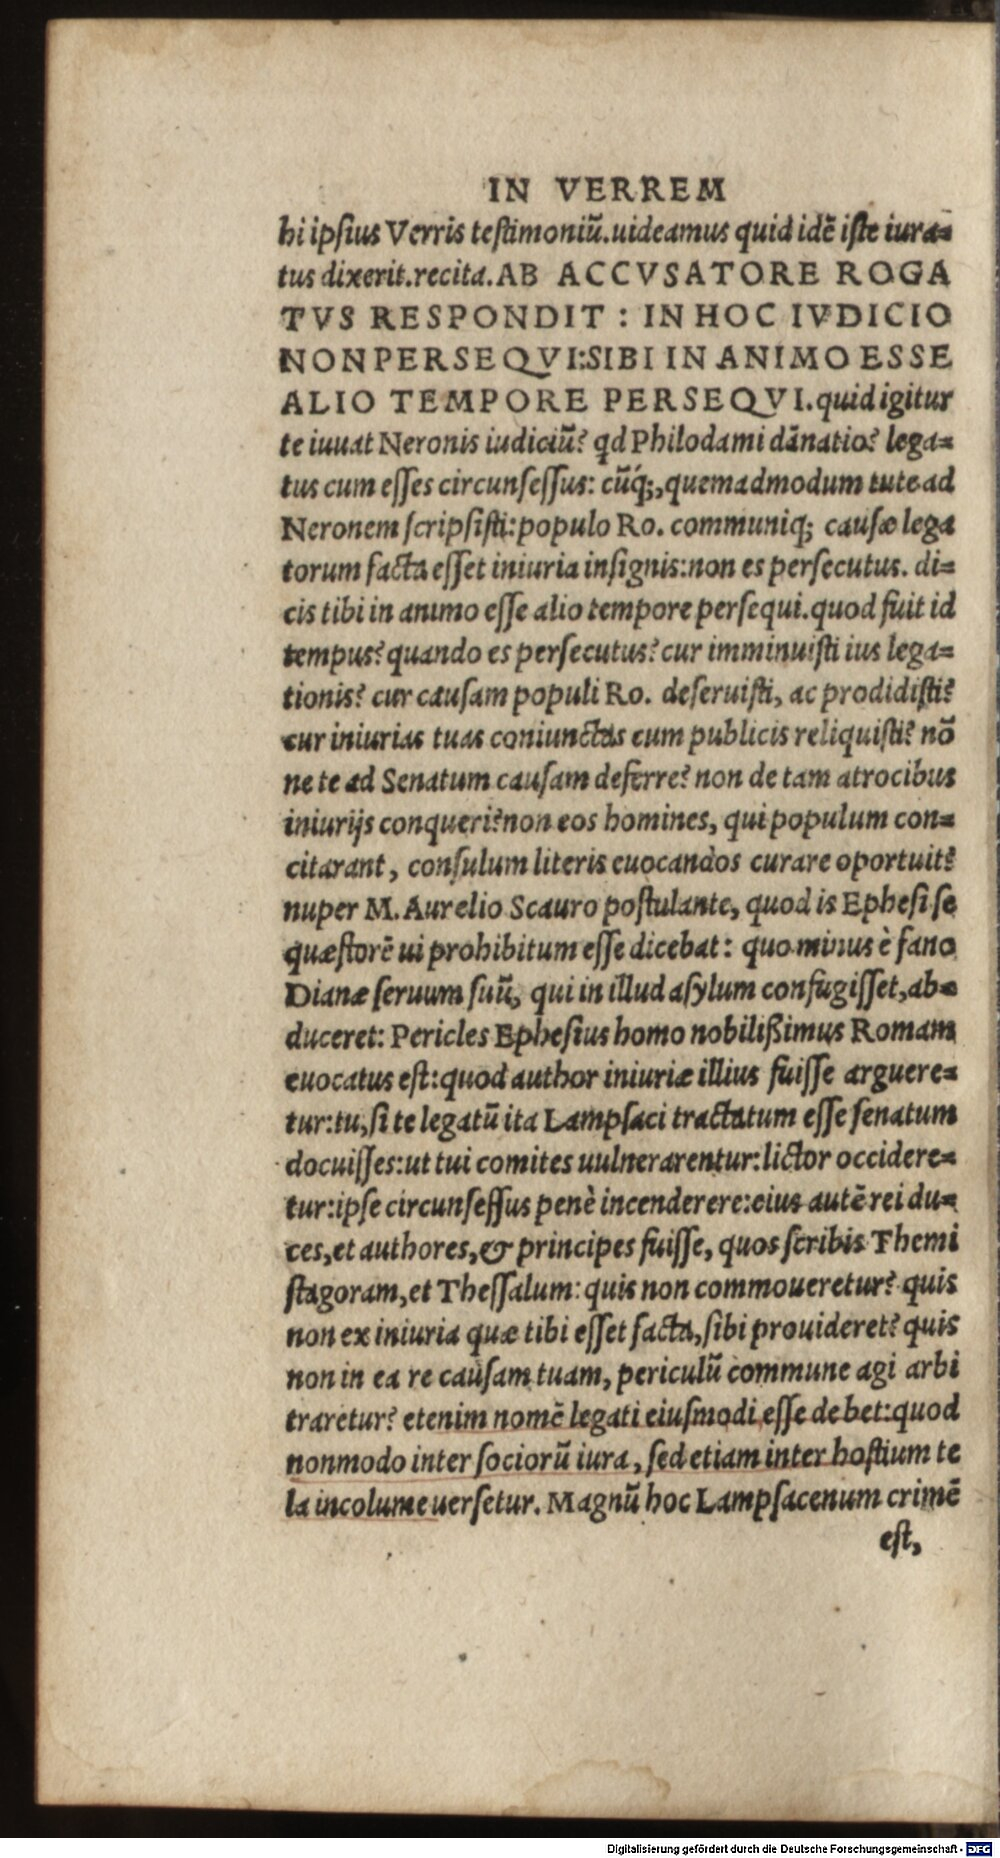 IN VERREM
hi ipsius Verris testimoniũ.uideamus quid idẽ iste iura-
tus dixerit.recita. AB ACCVSATORE ROGA
TVS RESPONDIT : IN HOC IVDICIO
NON PERSEQVI:SIBI IN ANIMO ESSE
ALIO TEMPORE PERSEQVI.quid igitur
te iuuat Neronis iudiciũ? qd Philodami dãnatio? lega-
tus cum esses circunsessus: cũq́;,quemadmodum tute ad
Neronem scripsisti:populo Ro. communiq; causæ lega
torum facta esset iniuria insignis:non es persecutus. di-
cis tibi in animo esse alio tempore persequi.quod fuit id
tempus?quando es persecutus?cur imminuisti ius lega-
tionis? cur causam populi Ro. deseruisti, ac prodidisti?
cur iniurias tuas coniunctas cum publicis reliquisti? nõ
ne te ad Senatum causam deferre? non de tam atrocibus
iniurijs conqueri?non eos homines, qui populum con-
citarant, consulum literis euocandos curare oportuit?
nuper M. Aurelio Scauro postulante, quod is Ephesi se
quæstorẽ ui prohibitum esse dicebat: quo minus è fano
Dianæ seruum suũ, qui in illud asylum confugisset,ab-
duceret: Pericles Ephesius homo nobilißimus Romam
euocatus est:quod author iniuriæ illius fuisse arguere-
tur:tu,si te legatũ ita Lampsaci tractatum esse senatum
docuisses:ut tui comites uulnerarentur:lictor occidere-
tur:ipse circunsessus penè incenderere:eius autẽ rei du-
ces,et authores,& principes fuisse, quos scribis Themi
stagoram,et Thessalum: quis non commoueretur? quis
non ex iniuria quæ tibi esset facta,sibi prouideret? quis
non in ea re causam tuam, periculũ commune agi arbi
traretur? etenim nomẽ legati eiusmodi esse debet:quod
nonmodo inter sociorũ iura, sed etiam inter hostium te
la incolume uersetur. Magnũ hoc Lampsacenum crimẽ
est,
Digitalisierung gefördert durch die Deutsche Forschungsgemeinschaft - DFG